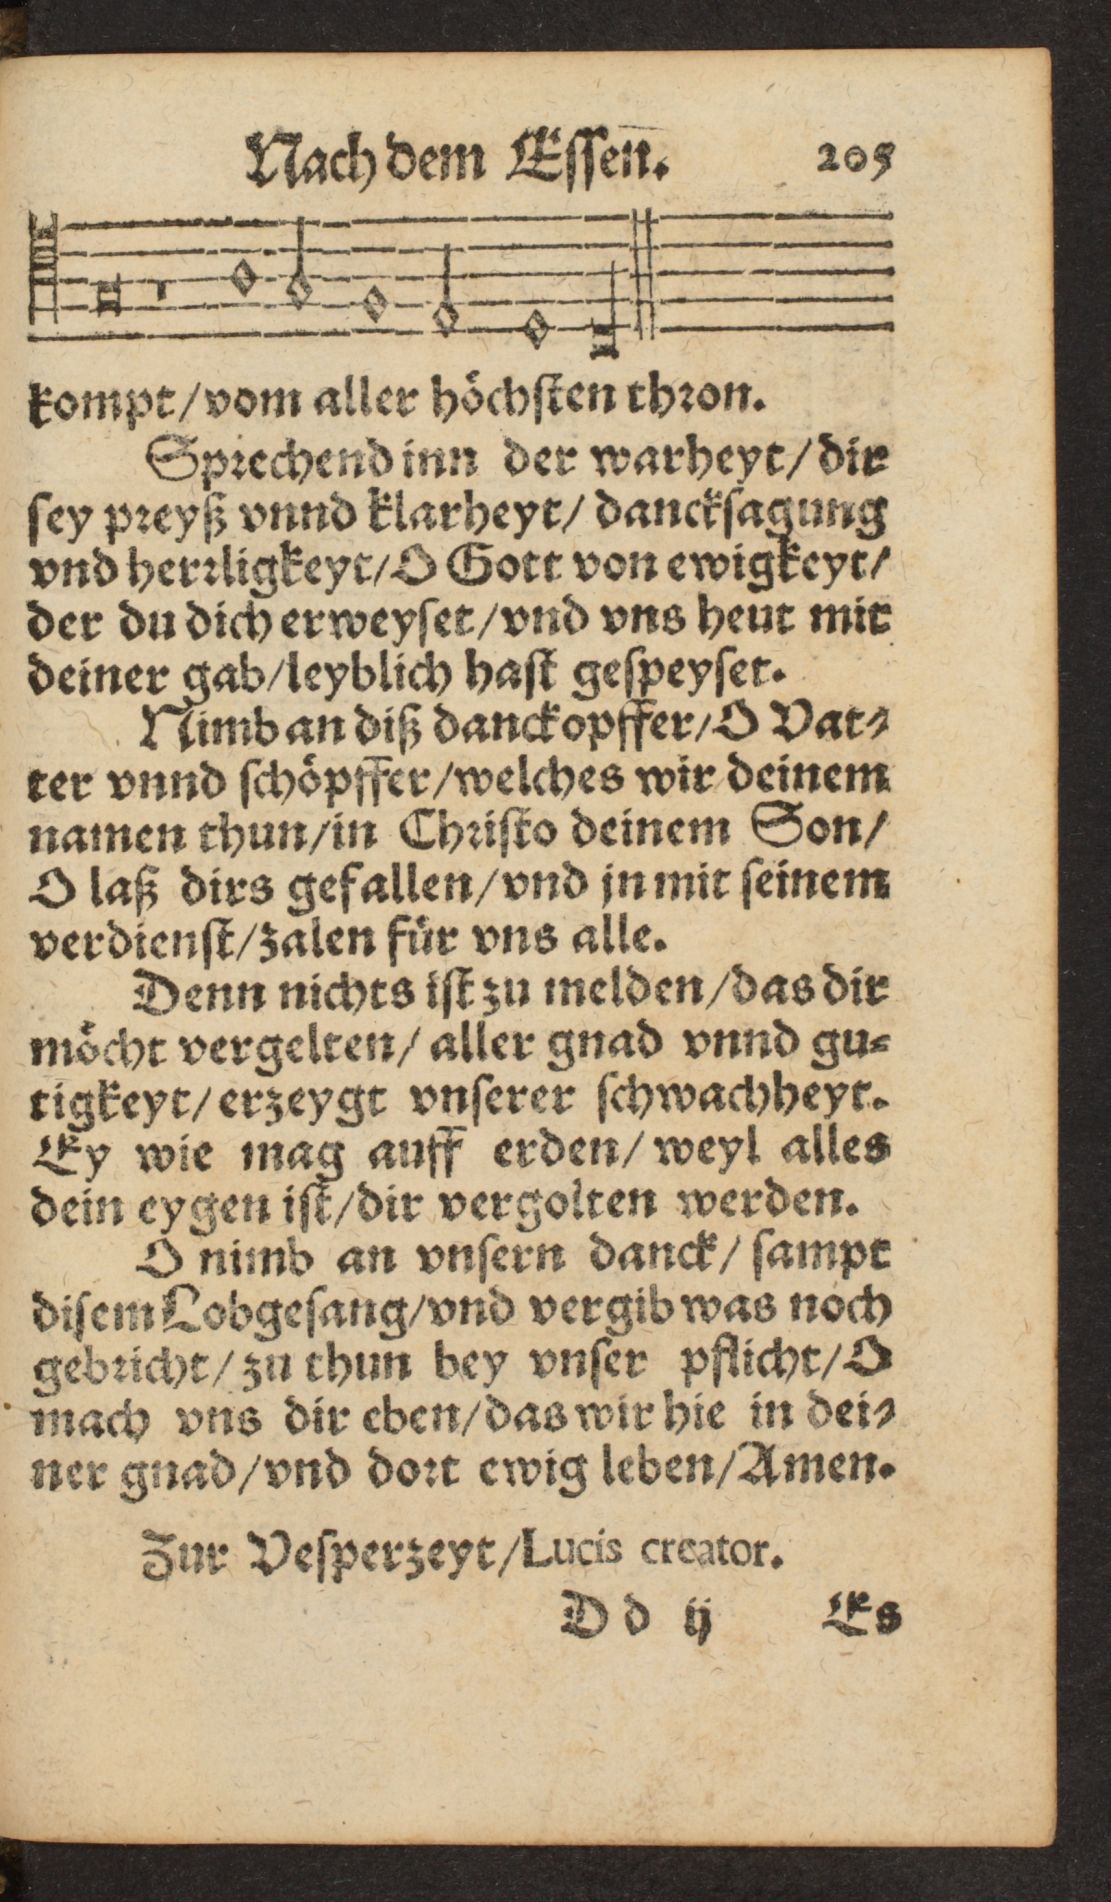 Nach dem Essen. 205
kompt/vom aller höchsten thron.
Sprechend inn der warheyt/dir
sey preyß vnnd klarheyt/ dancksagung
vnd herrligkeyt/O Gott von ewigkeyt/
der du dich erweyset/vnd vns heut mit
deiner gab/leyblich hast gespeyset.
Nimb an diß danckopffer/O Vat⸗
ter vnnd schöpffer/welches wir deinem
namen thun/in Christo deinem Son/
O laß dirs gefallen/vnd jn mit seinem
verdienst/zalen für vns alle.
Denn nichts ist zu melden/das dir
möcht vergelten/ aller gnad vnnd gu⸗
tigkeyt/erzeygt vnserer schwachheyt.
Ey wie mag auff erden/ weyl alles
dein eygen ist/dir vergolten werden.
O nimb an vnsern danck/ sampt
disem Lobgesang/vnd vergib was noch
gebricht/ zu thun bey vnser pflicht/O
mach vns dir eben/das wir hie in dei⸗
ner gnad/vnd dort ewig leben/Amen.
Zur Vesperzeyt/Lucis creator.
D d ij Es